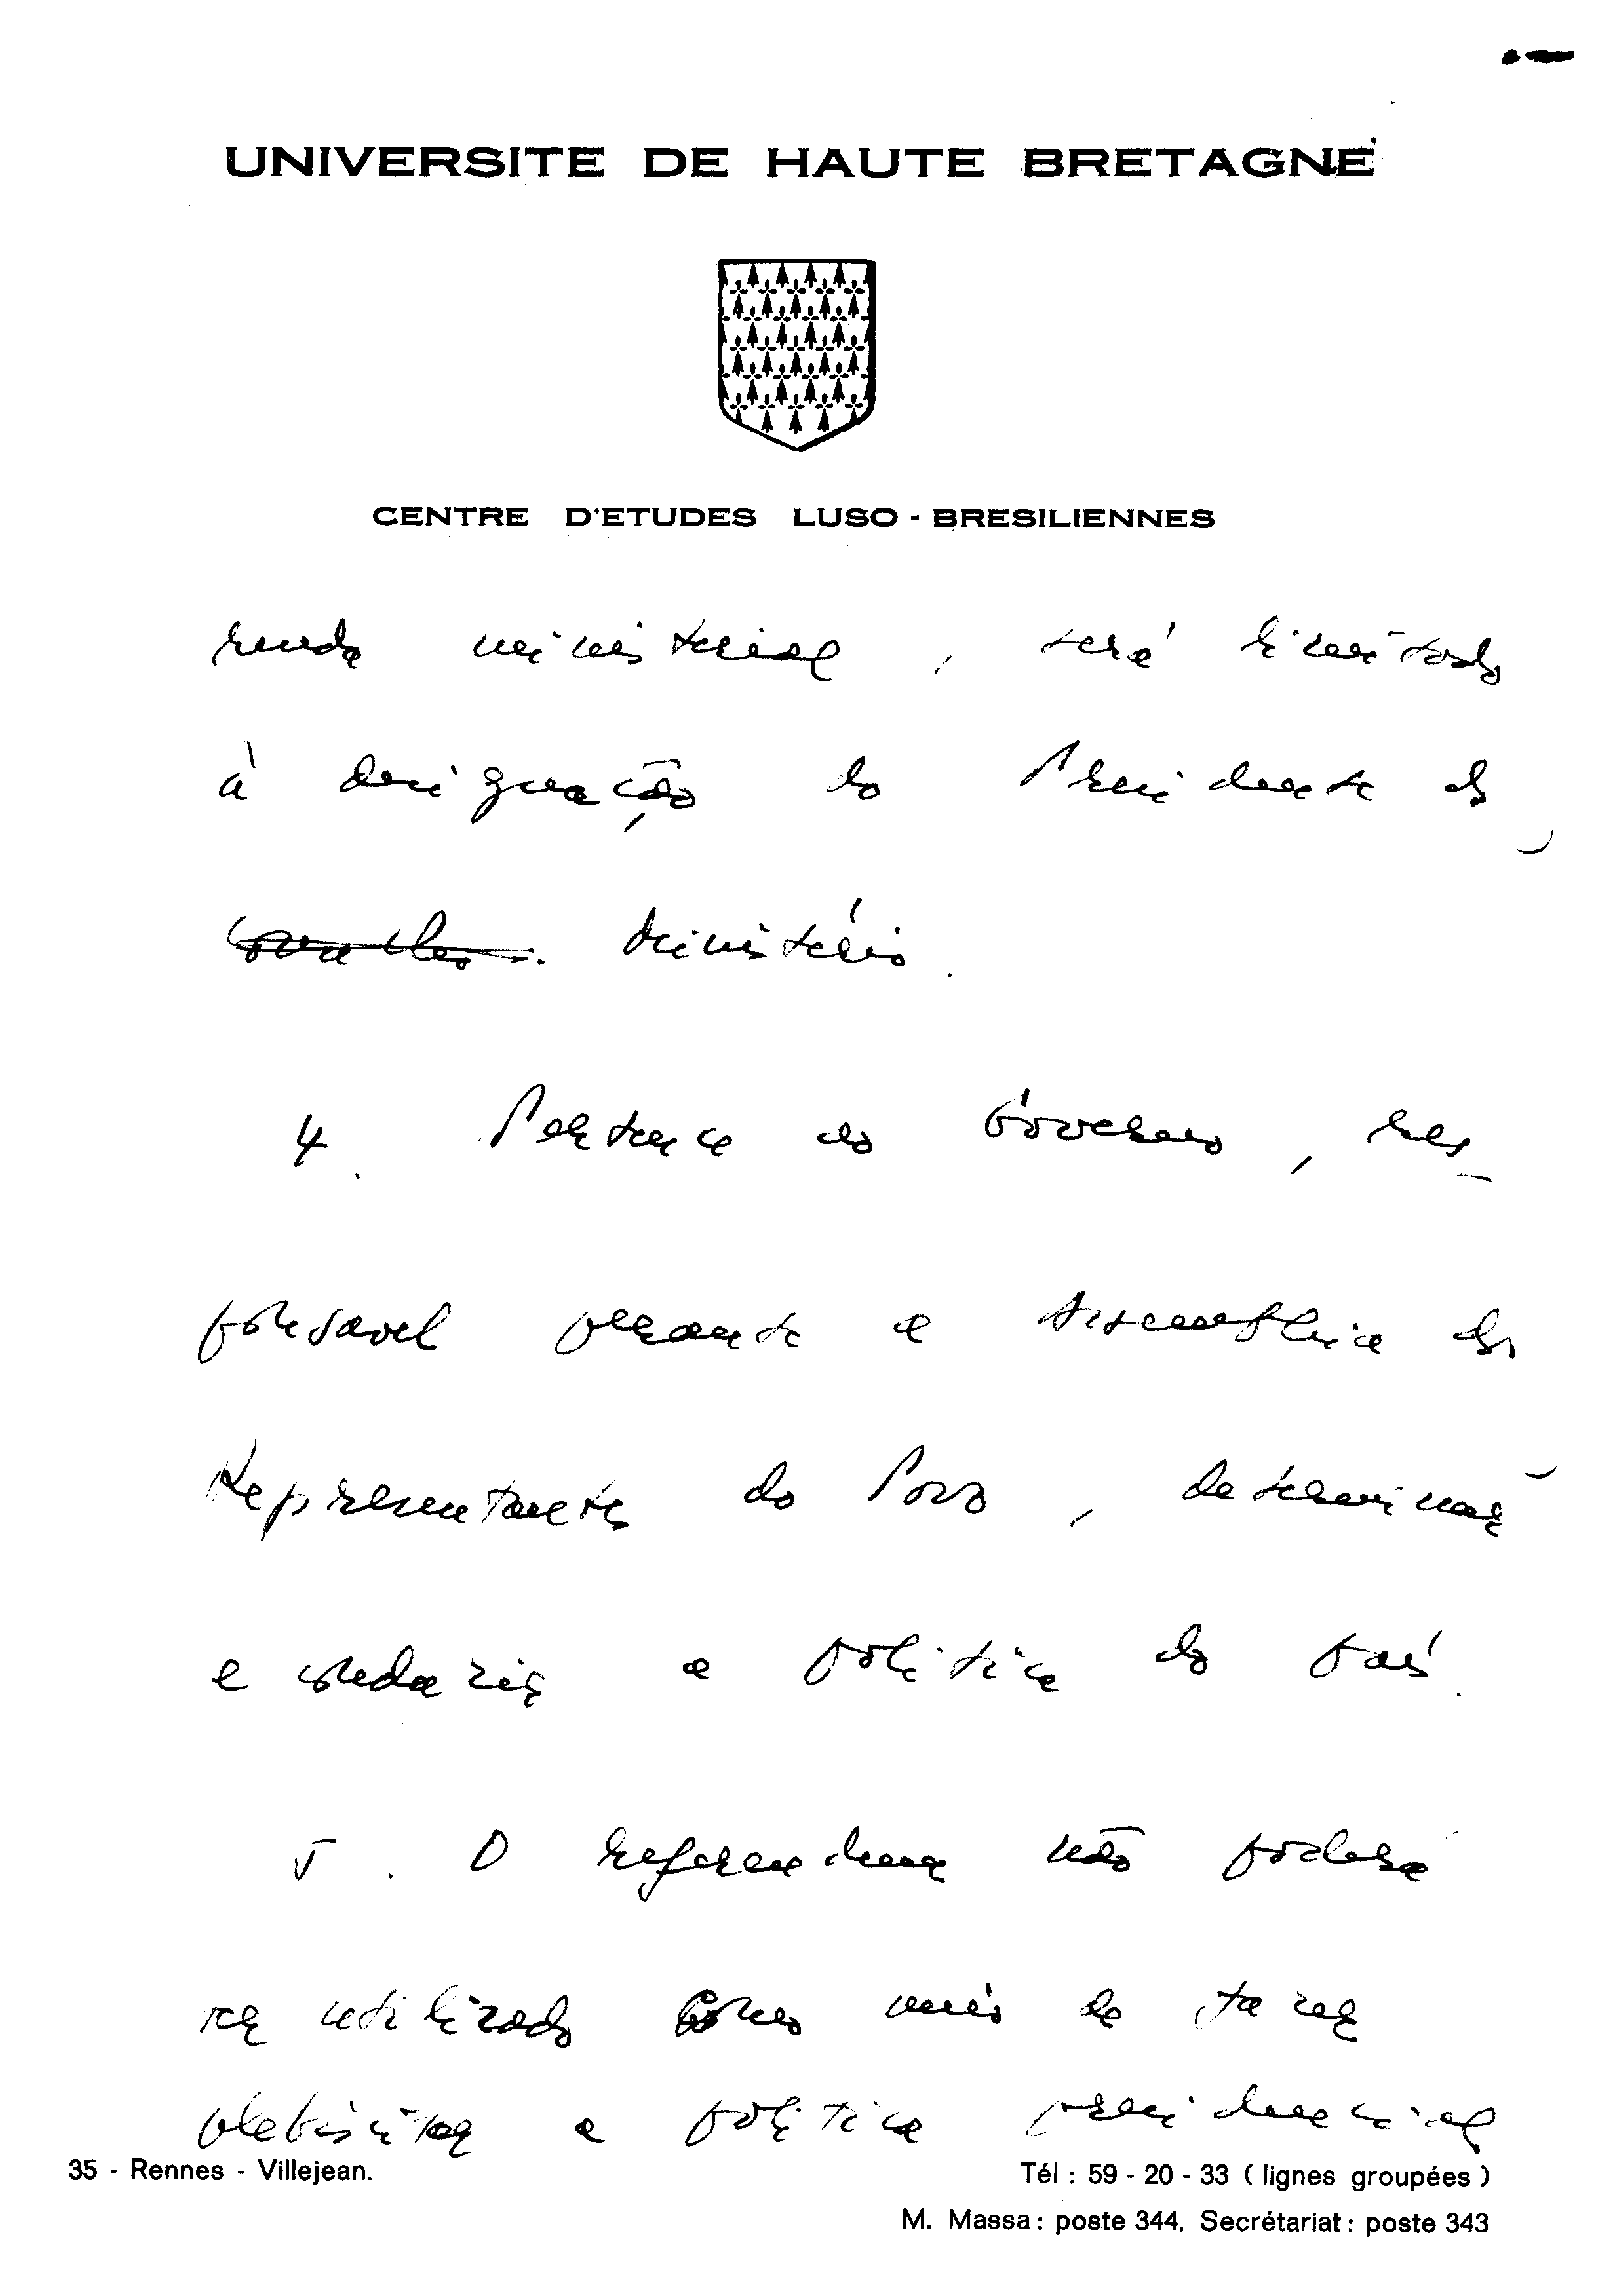 UNIVERSITE DE HAUTE BRETAGNE
CENTRE D'ETUDES LUSO - BRESILIENNES
renda ministerial, será limitado
à designação do Presidente do
Ministério.
4. Pertence ao Govêrno, res-
ponsavel perante a Assembleia dos
Representantes do Povo, determinar
e conduzir a política do país.
5. O referendum não poderá
ser utilizado como meio de fazer
plebiscitar a política presidencial
35 - Rennes - Villejean.
Tél : 59 - 20 - 33 ( lignes groupées )
M. Massa : poste 344. Secrétariat : poste 343